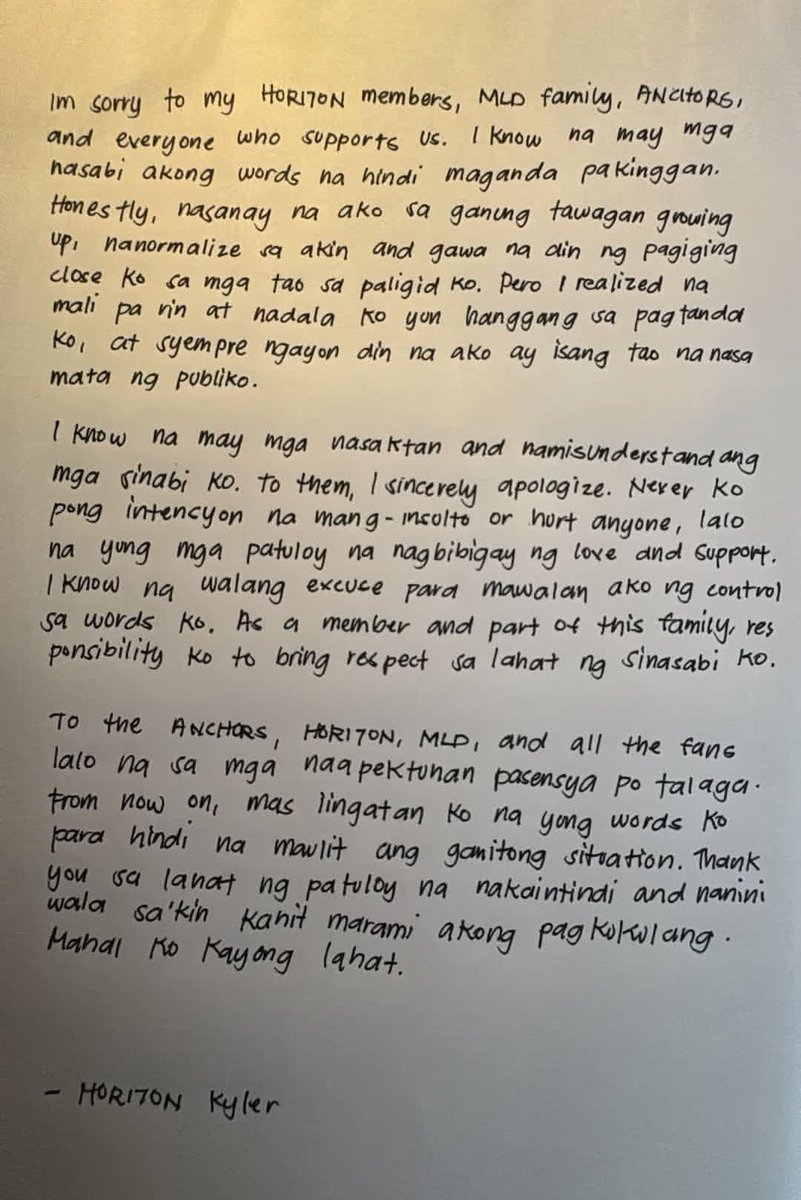 Im sorry to my HORI7ON members, MLD family, ANCHORS,
and everyone who supports us. I know na may mga
nasabi akong words na hindi maganda pakinggan.
Honestly, nasanay na ako sa ganung tawagan growing
up, nanormalize sa akin and gawa na din ng pagiging
close ko sa mga tao sa paligid ko. Pero I realized na
mali pa rin at nadala ko yun hanggang sa pagtanda
ko, at syempre ngayon din na ako ay isang tao na nasa
mata ng publiko.
I know na may mga nasaktan and namisunderstand ang
mga sinabi ko. To them, I sincerely apologize. Never ko
pong intencyon na mang-insulto or hurt anyone, lalo
na yung mga patuloy na nagbibigay ng love and support.
I know na walang excuse para mawalan ako ng control
sa words ko. As a member and part of this family, res
ponsibility ko to bring respect sa lahat ng sinasabi ko.
To the ANCHORS, HORI7ON, MLD, and all the fans
lalo na sa mga naapektuhan pasensya po talaga.
From now on, mas iingatan ko na yung words ko
para hindi na maulit ang ganitong situation. Thank
you sa lahat ng patuloy na nakaintindi and nanini
wala sa'kin kahit marami akong pagkukulang.
Mahal ko kayong lahat.
- HORI7ON Kyler